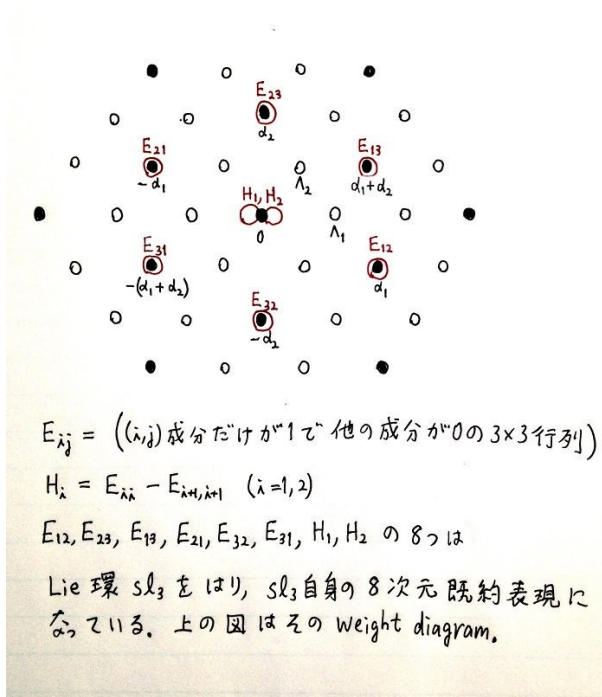 E₂₃
α₂
E₂₁
-α₁
E₁₃
α₁+α₂
Λ₂
H₁, H₂
0
Λ₁
E₃₁
-(α₁+α₂)
E₁₂
α₁
E₃₂
-α₂
E_{ij} = ((i,j)成分だけが1で他の成分が0の3×3行列)
H_i = E_{ii} - E_{i+1,i+1} (i=1,2)
E₁₂, E₂₃, E₁₃, E₂₁, E₃₂, E₃₁, H₁, H₂ の 8つは
Lie 環 sl₃ をはり, sl₃自身の 8次元 既約表現に
なっている. 上の図はその weight diagram.